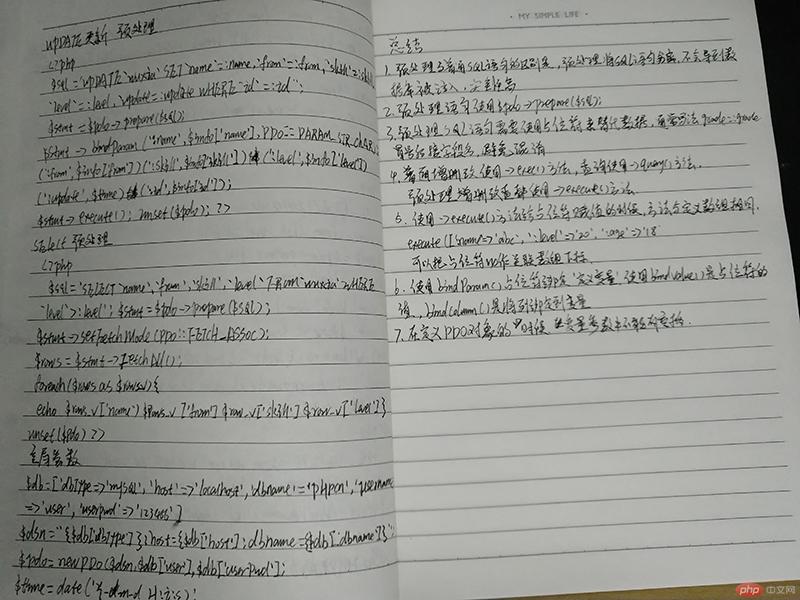 UPDATE更新 预处理
<?php
$sql='UPDATE `wuxia` SET `name`=:name,`from`=:from,`skill`=:skill,
`level`=:level,`update`=:update WHERE `id`=:id';
$stmt = $pdo->prepare($sql);
$stmt->bindParam(':name',$info['name'],PDO::PARAM_STR_CHAR)
(':from',$info['from'])(':skill',$info['skill'])(':level',$info['level'])
(':update',$time)(':id',$info['id']);
$stmt->execute(); unset($pdo); ?>
SELECT 预处理
<?php
$sql='SELECT `name`,`from`,`skill`,`level` FROM `wuxia` WHERE
`level`>:level'; $stmt=$pdo->prepare($sql);
$stmt->setFetchMode(PDO::FETCH_ASSOC);
$rows=$stmt->fetchAll();
foreach($rows as $row_v){
echo $row_v['name'] $row_v['from'] $row_v['skill'] $row_v['level']}
unset($pdo) ?>
全局参数
$db=['dbType'=>'mysql','host'=>'localhost','dbname'=>'phpcn','username'
=>'user','userpwd'=>'123456']
$dsn="{$db['dbType']}:host={$db['host']};dbname={$db['dbname']}";
$pdo=new PDO($dsn,$db['user'],$db['userpwd'];
$time=date('Y-m-d H:i:s);
· MY SIMPLE LIFE ·
总结
1. 预处理与普通SQL语句的区别是,预处理将SQL语句分离,不会导致数
据库被注入,安全性高
2. 预处理语句使用$pdo->prepare($sql);
3. 预处理SQL语句需要使用占位符来替代数据,
4. 普通增删改使用->exec()方法,查询使用->query()方法.
预处理增删改查都使用->execute()方法
5. 使用->execute()方法给占位符赋值的时候,方法合定义数组相同.
execute(['name'=>'abc',':level'=>'20',':age'=>'18'
可以把占位符以作关联数组下标
6. 使用bindParam()占位符绑定"定变量"使用bindvalue()是占位符的
值,bindcolumn()是将列绑定到变量
7. 在定义PDO对象的时候 变量参数
php 中文网